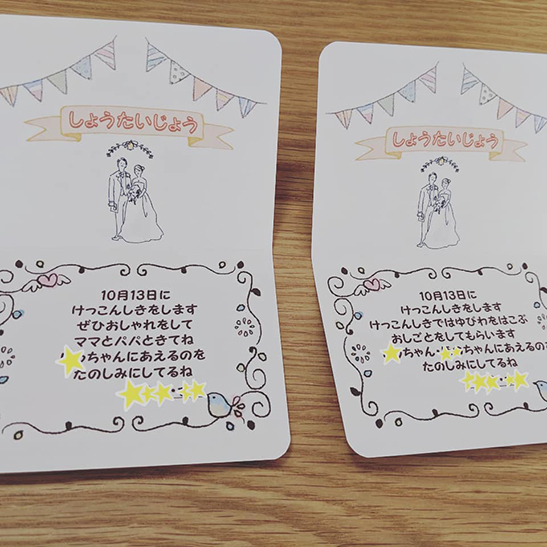 しょうたいじょう
10月13日に
けっこんしきをします
ぜひおしゃれをして
ママとパパときてね
ちゃんにあえるのを
たのしみにしてるね
しょうたいじょう
10月13日に
けっこんしきをします
けっこんしきではゆびわをはこぶ
おしごとをしてもらいます
ちゃん・ちゃんにあえるのを
たのしみにしてるね